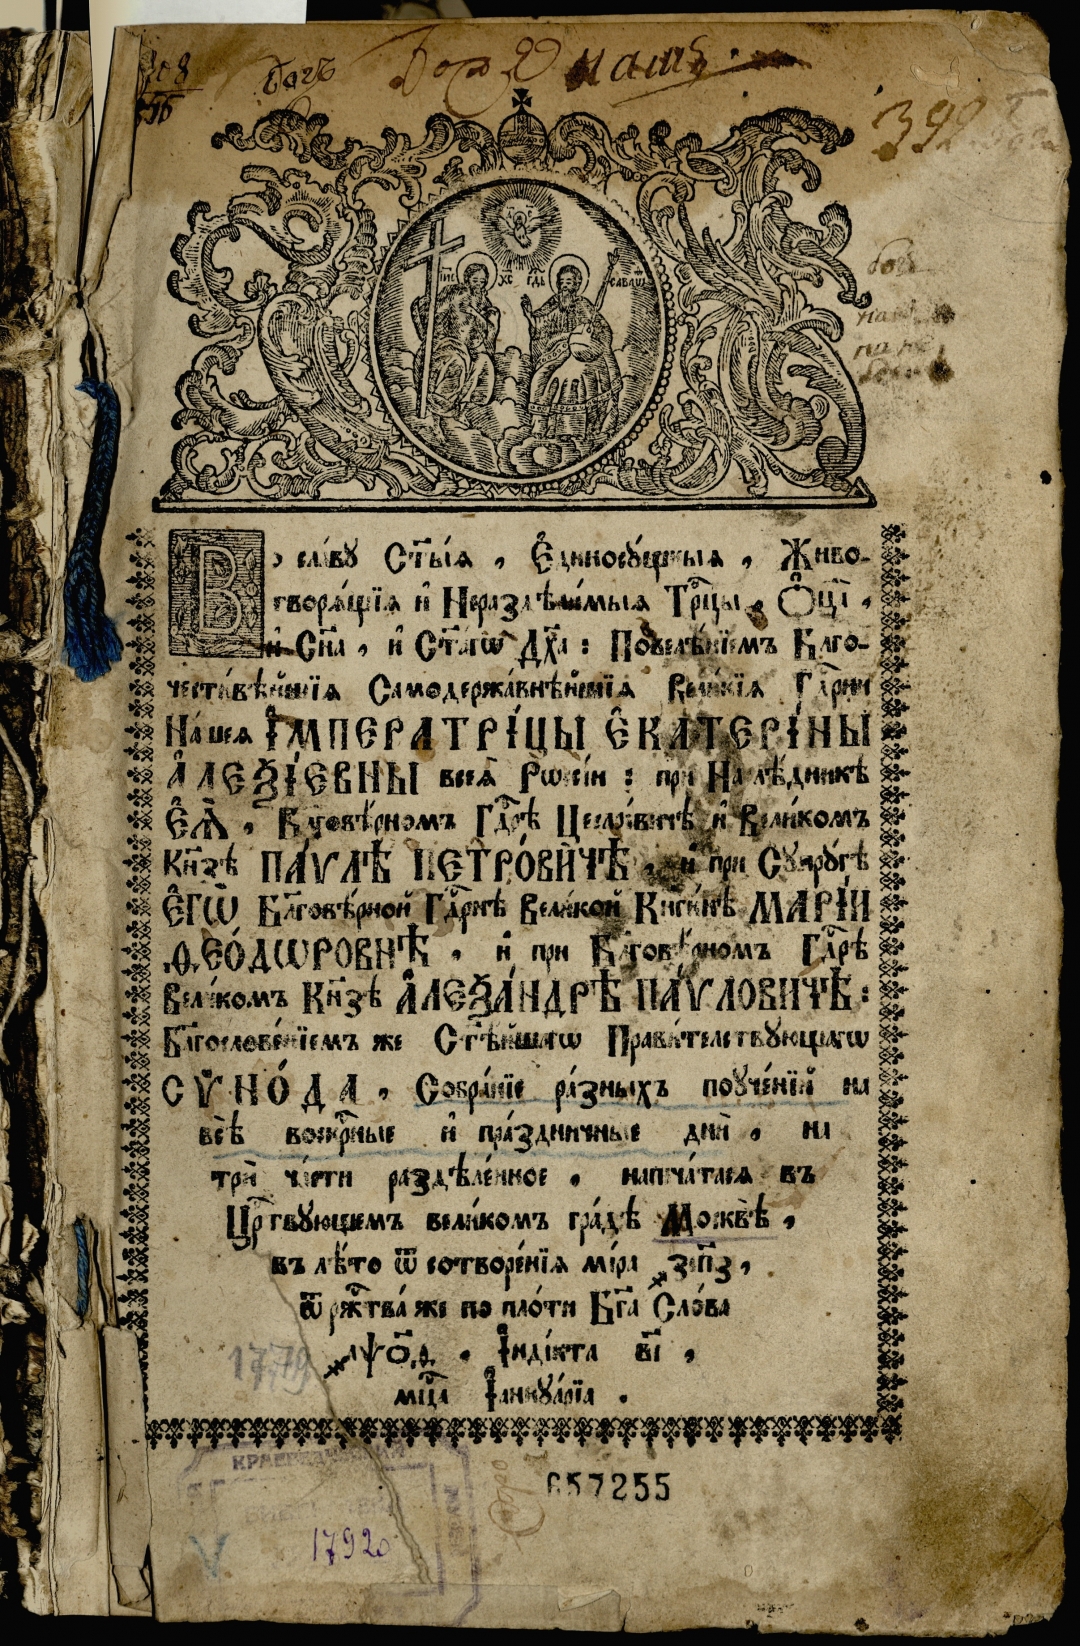 богъ Боже нашъ
392
І҃ИС Х҃С ГДЬ САВАѠѲ
Во сла́ву Ст҃ы́ѧ, Є҆диносꙋ́щныѧ, Живо-
творѧ́щїѧ и҆ Нераздѣли́мыѧ Трⷪ҇цы, Ѻ҆ц҃а̀,
и҆ Сн҃а, и҆ Ст҃а́гѡ Дх҃а: Повелѣ́нїемъ Бл҃го-
чести́вѣйшїѧ Самодержа́внѣйшїѧ Вели́кїѧ Гдⷭ҇рни
На́шеѧ І҆МПЕРАТРІ́ЦЫ Є҆КАТЕРІ́НЫ
А҆ЛЕѮІ́ЕВНЫ всеѧ̀ Рѡссі́и: при Наслѣ́дникѣ
Є҆Ѧ̀, Бл҃говѣ́рномъ Гдⷭ҇рѣ Цесаре́вичѣ и҆ Вели́комъ
Кн҃зѣ ПА́ѴЛѢ ПЕТРО́ВИЧѢ, и҆ при Сꙋпрꙋ́гѣ
Є҆ГѠ̀ Бл҃говѣ́рной Гдⷭ҇рнѣ Вели́кой Кнг҃и́нѣ МАРІ́И
Ѳ҆ЕО́ДѠРОВНѢ, и҆ при Бл҃говѣ́рномъ Гдⷭ҇рѣ
Вели́комъ Кн҃зѣ А҆ЛЕѮА́НДРѢ ПА́ѴЛОВИЧѢ:
Бл҃гослове́нїемъ же Ст҃ѣ́йшагѡ Прави́телствꙋющагѡ
СѴНО́ДА, Собра́нїе ра́зныхъ поꙋче́нїй на
всѣ̀ воскрⷭ҇ные и҆ пра́здничные дни̑, на
три̑ ча́сти раздѣле́нное, напеча́тасѧ въ
Црⷭ҇твꙋющемъ вели́комъ гра́дѣ Москвѣ̀,
въ лѣ́то ѿ сотворе́нїѧ мі́ра ҂зсп҃з,
ѿ ржⷭ҇тва́ же по пло́ти Бг҃а Сло́ва
҂аѱѻ҃ѳ, І҆нді́кта в҃і,
мцⷭ҇а І҆аннꙋа́рїа.
1779
657255
17920